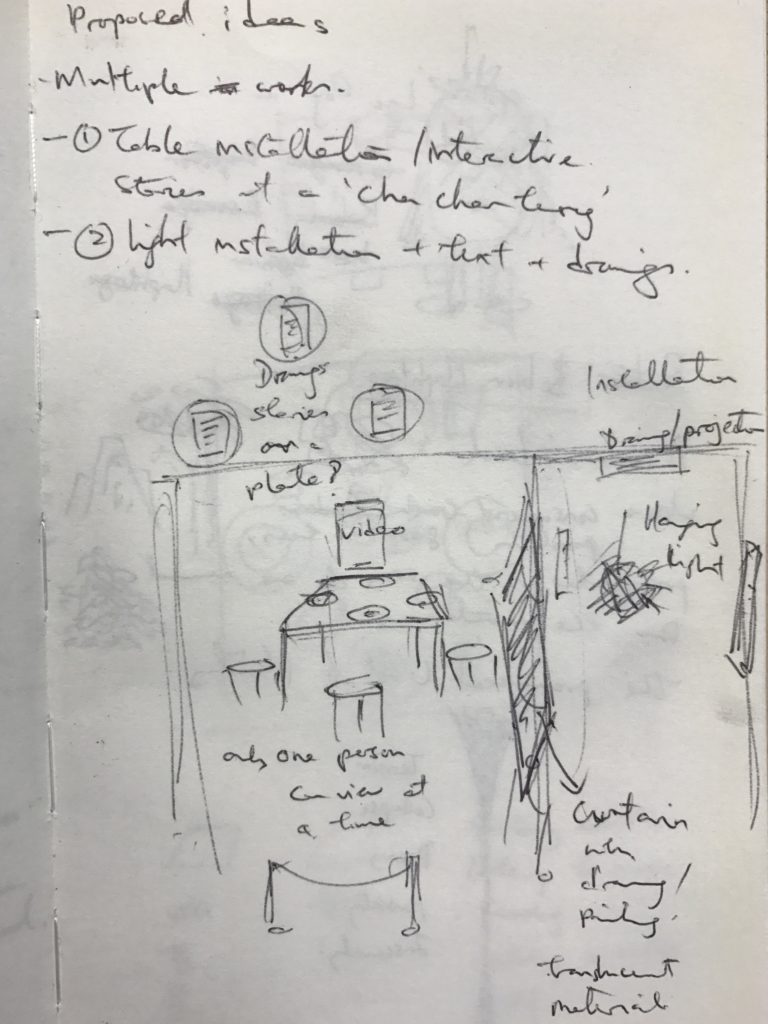 Proposed ideas
- Multiple works.
- ① Table installation / interactive
stories at a 'cha chan teng'
- ② light installation + text + drawings.
Drawings
stories
on a
plate?
Installation
Drawing/projection
video
Hanging
light
only one person
can view at
a time
Curtain
with
drawing/
printing.
translucent
material